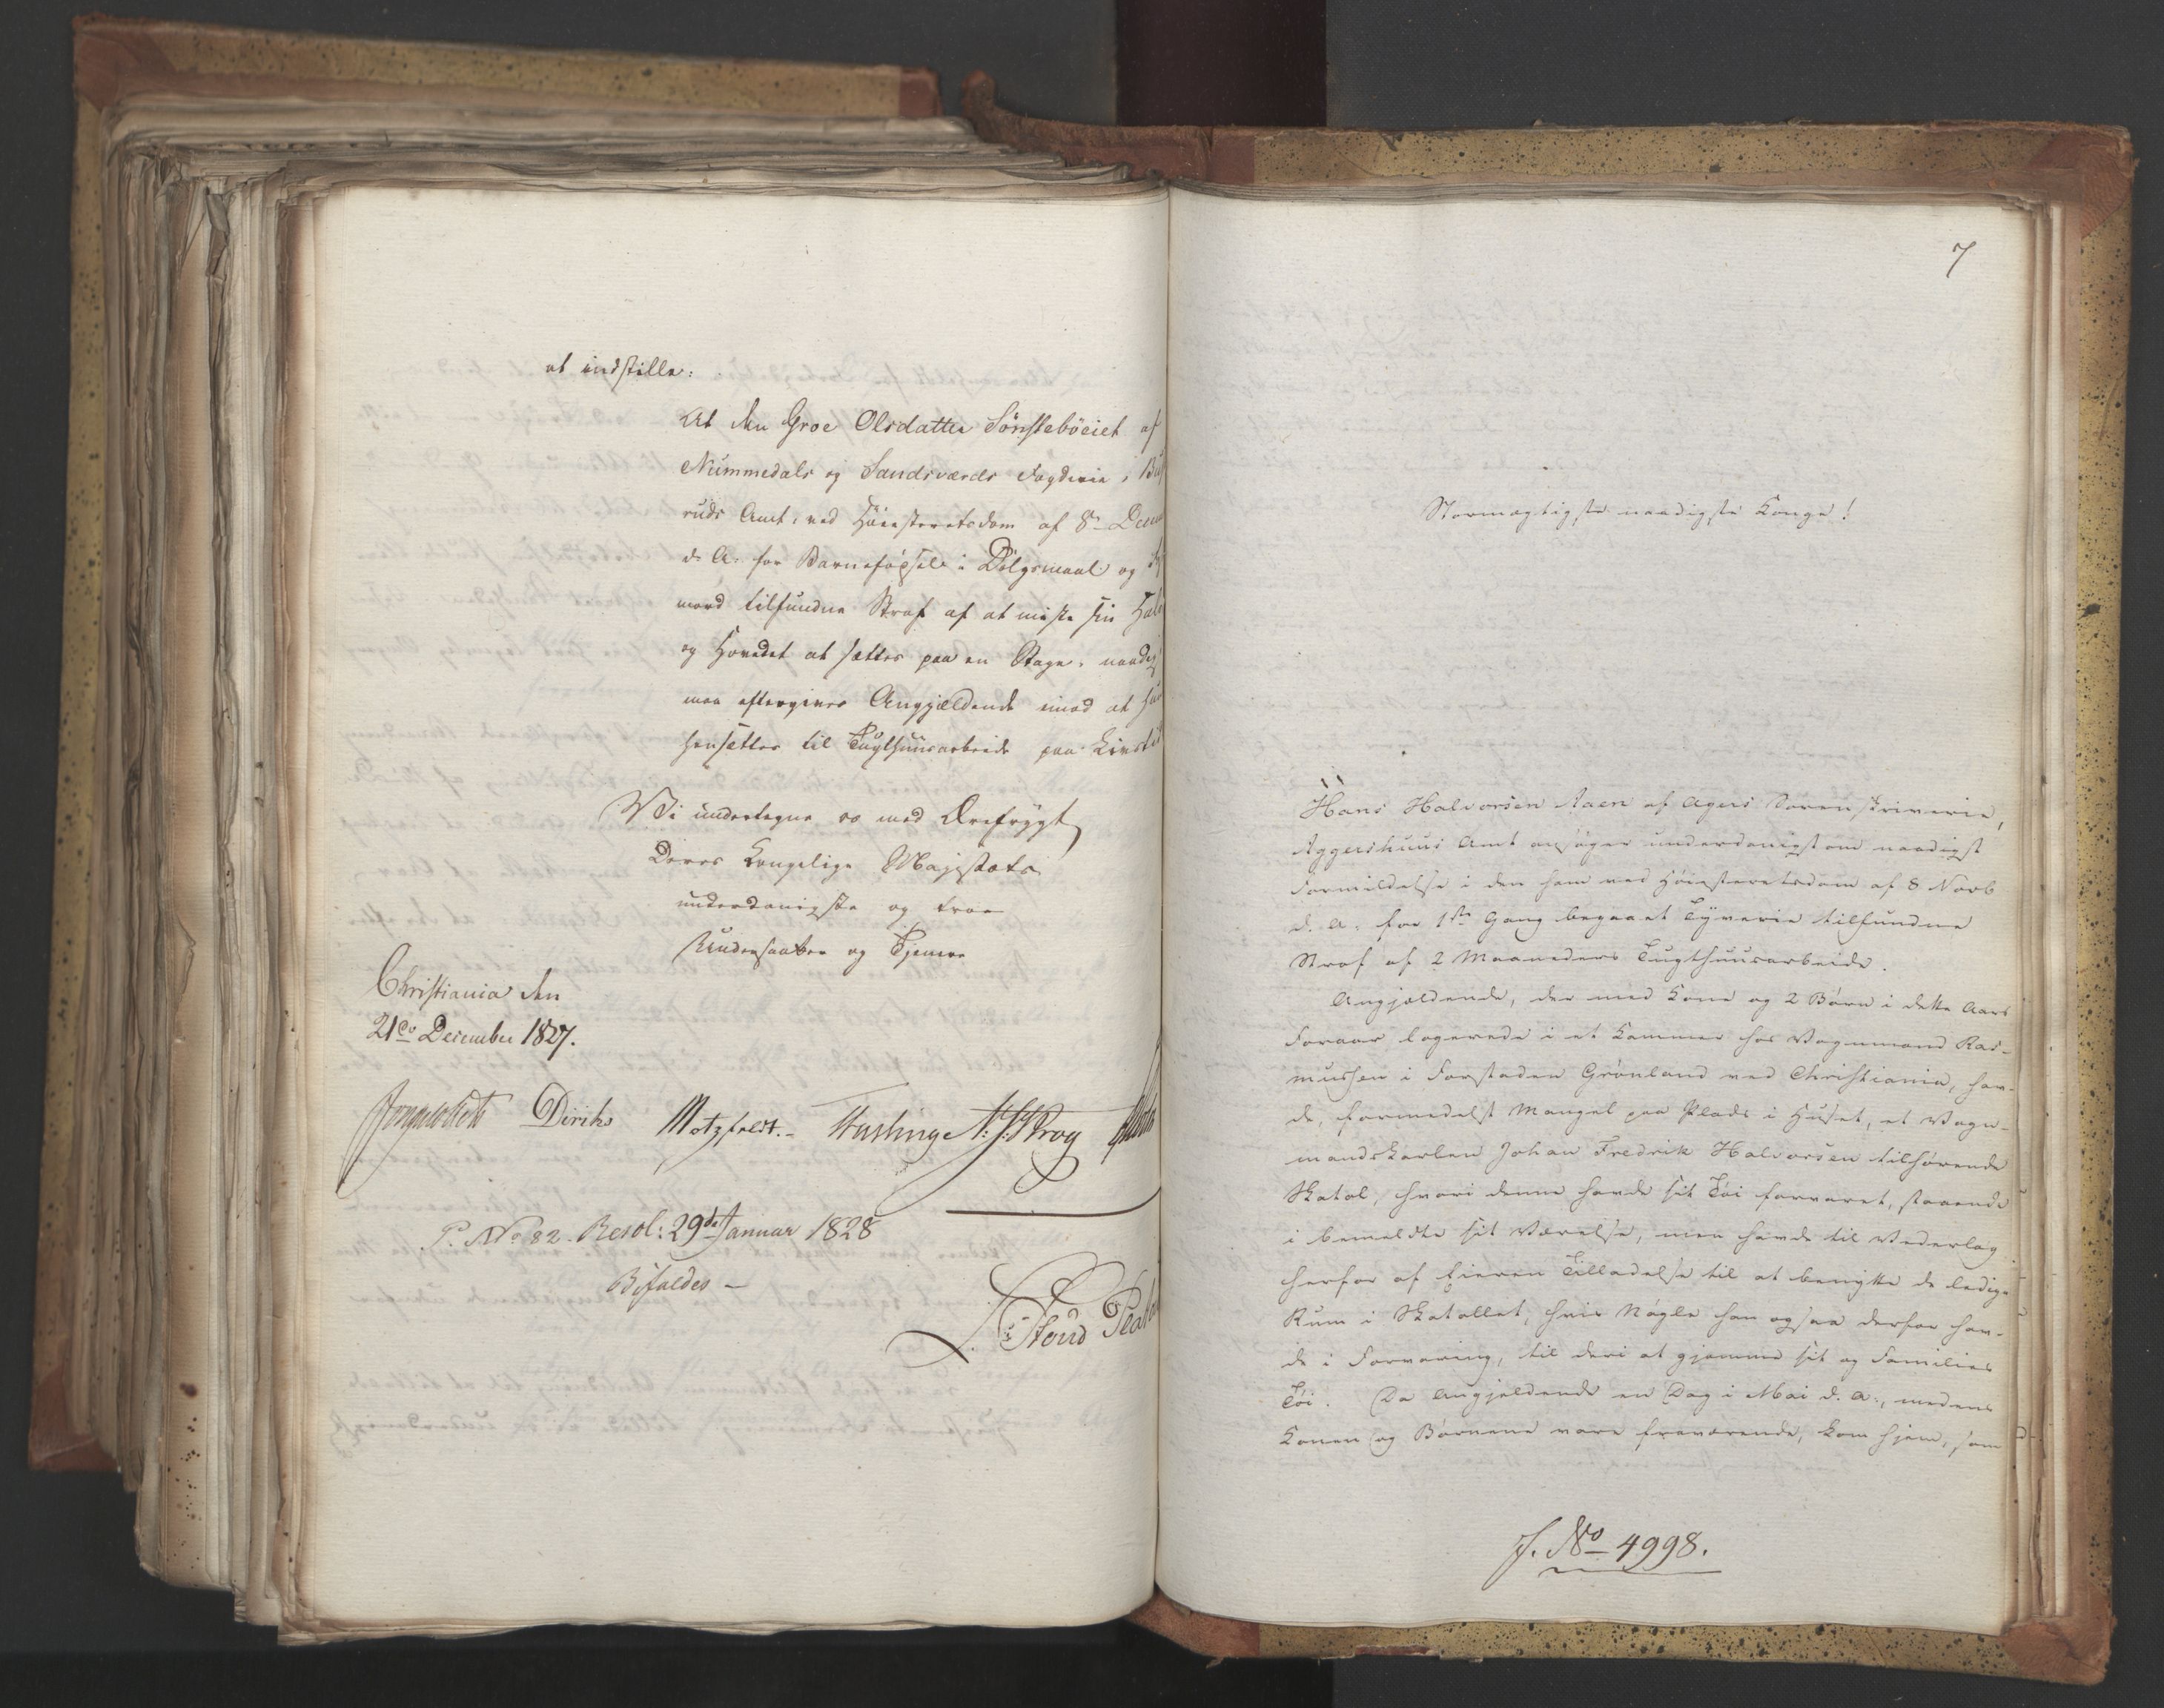 at indstille:
At den Groe Olsdatter Sönstebøeiet af
Nummedals og Sandsværds Fogderie i
ruds Amt, ved Høiesteretsdom af 8de
d. A. for Barnefødsel i Dølgsmaal og
mord tilfundne Straf af at miste sin Hals
og Hovedet at sættes paa en Stage, naadigst
maa eftergives Angjældende imod at hun
hensættes til Tugthuusarbeide paa Livstid
Vi undertegne os med Ærefrygt
Deres Kongelige Majestæts
underdanigste og troe
Undersaatter og Tjenere
Christiania den
21de December 1827.
Diriks Motzfeldt. N: J: Krog
P. No 82. Resol: 29de Januar 1828
Bifaldes –
7
Stormægtigste naadigste Konge!
Hans Halvorsen Aaen af Agers Sorenskriverie,
Aggershuus Amt ansøger underdanigst om naadigst
Formildelse i den ham ved Høiesteretsdom af 8 Novb
d. A. for 1ste Gang begaaet Tyverie tilfundne
Straf af 2 Maaneders Tugthuusarbeide.
Angjældende, der med Kone og 2 Børn i dette Aars
Foraar logerede i et Kammer hos Vognmand Ras-
mussen i Forstaden Grønland ved Christiania, hav-
de, formedelst Mangel paa Plads i Huset, et Vogn-
mandskarlen Johan Fredrik Halvorsen tilhørende
Skatol, hvori denne havde sit Tøi forvaret, staaende
i bemeldte sit Værelse, men havde til Vederlag
herfor af Eieren Tilladelse til at benytte de ledige
Rum i Skatollet, hvis Nøgle han ogsaa derfor hav-
de i Forvaring, til deri at gjemme sit og Families
Tøi. Da Angjeldende en Dag i Mai d. A., medens
Konen og Børnene vare fraværende, kom hjem, sam
J. No 4998.